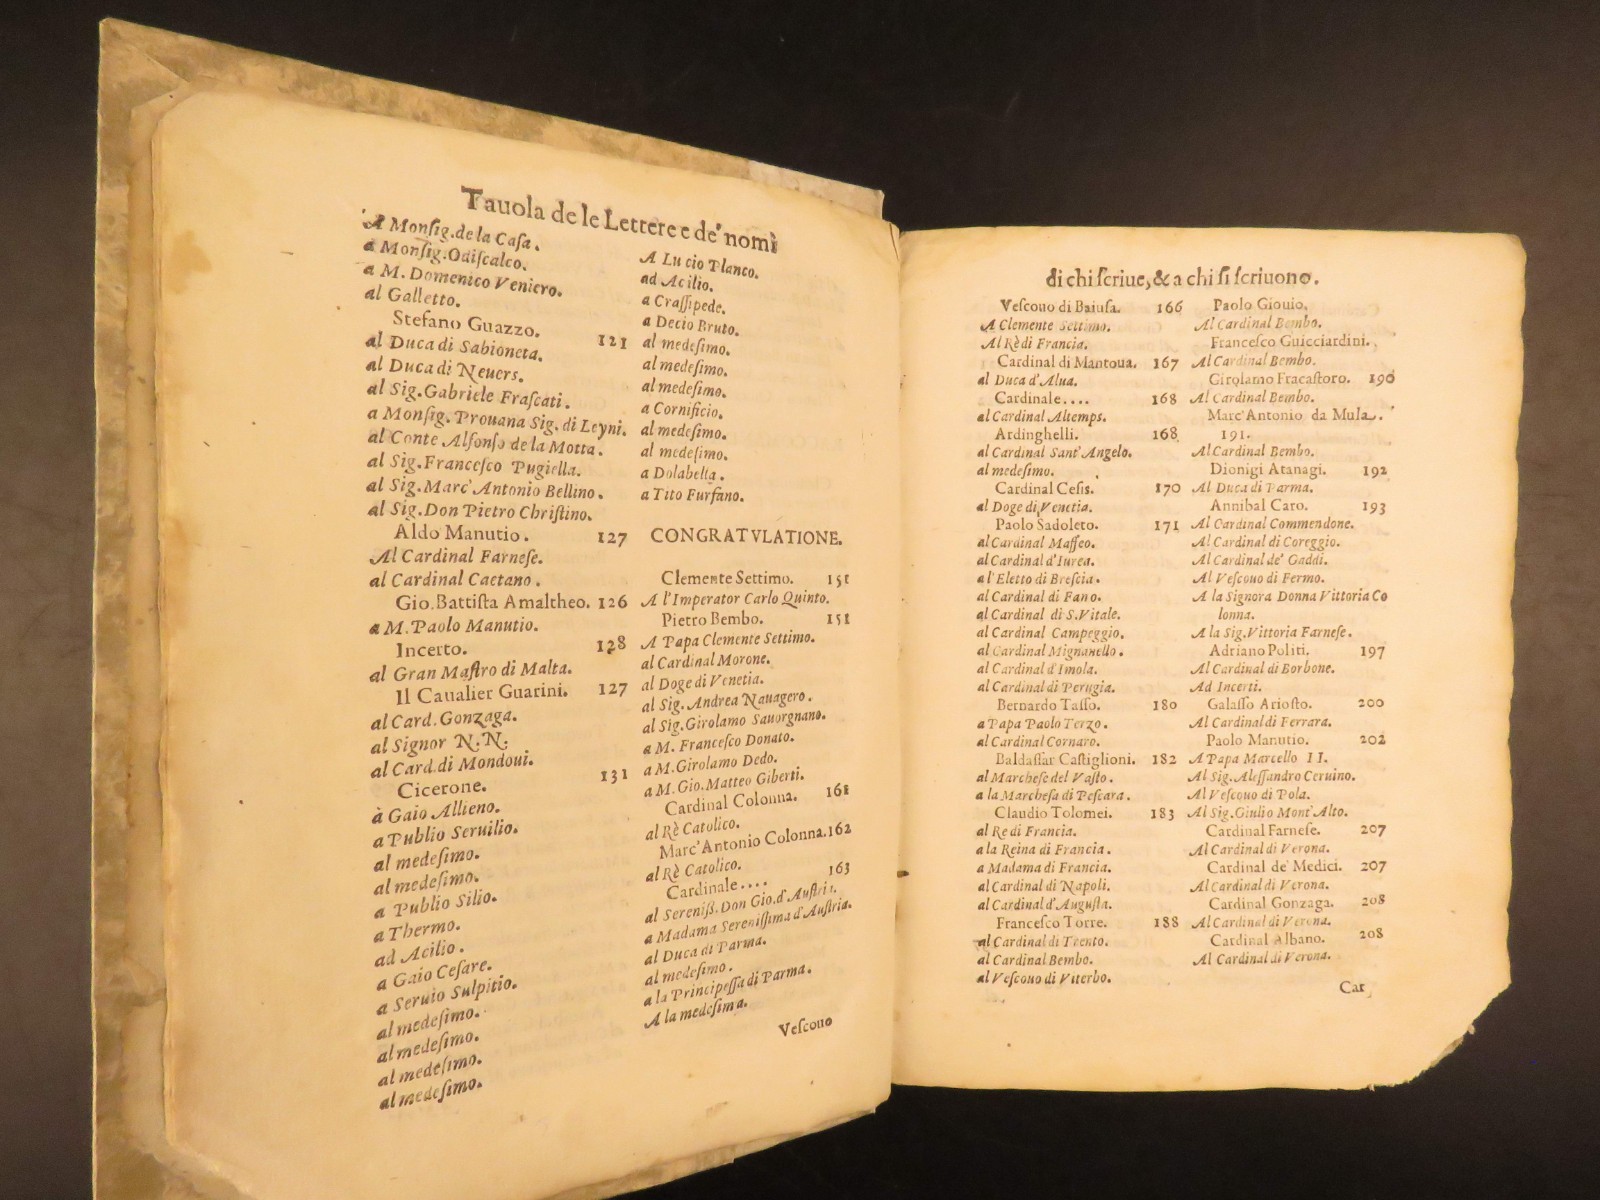 Tauola de le Lettere e de' nomi
A Monſig. de la Caſa.
a Monſig. Odiſcalco.
a M. Domenico Veniero.
al Galletto.
Stefano Guazzo. 121
al Duca di Sabioneta.
al Duca di Neuers.
al Sig. Gabriele Fraſcati.
a Monſig. Prouana Sig. di Leynì.
al Conte Alfonſo de la Motta.
al Sig. Franceſco Pugiella.
al Sig. Marc' Antonio Bellino.
al Sig. Don Pietro Chriſtino.
Aldo Manutio. 127
Al Cardinal Farneſe.
al Cardinal Caetano.
Gio. Battiſta Amaltheo. 126
a M. Paolo Manutio.
Incerto. 128
al Gran Maſtro di Malta.
Il Caualier Guarini. 127
al Card. Gonzaga.
al Signor N. N.
al Card. di Mondoui.
Cicerone. 131
à Gaio Allieno.
a Publio Seruilio.
al medeſimo.
al medeſimo.
a Publio Silio.
a Thermo.
ad Acilio.
a Gaio Ceſare.
a Seruio Sulpitio.
al medeſimo.
al medeſimo.
al medeſimo.
al medeſimo.
A Lucio Planco.
ad Acilio.
a Craſſipede.
a Decio Bruto.
al medeſimo.
al medeſimo.
al medeſimo.
a Cornificio.
al medeſimo.
al medeſimo.
a Dolabella.
a Tito Furfano.
CONGRATVLATIONE.
Clemente Settimo. 151
A l'Imperator Carlo Quinto.
Pietro Bembo. 151
A Papa Clemente Settimo.
al Cardinal Morone.
al Doge di Venetia.
al Sig. Andrea Nauagero.
al Sig. Girolamo Sauorgnano.
a M. Franceſco Donato.
a M. Girolamo Dedo.
a M. Gio. Matteo Giberti.
Cardinal Colonna. 161
al Rè Catolico.
Marc' Antonio Colonna. 162
al Rè Catolico.
Cardinale.... 163
al Sereniß. Don Gio. d'Auſtria.
a Madama Sereniſſima d'Auſtria.
al Duca di Parma.
al medeſimo.
a la Principeſſa di Parma.
A la medeſima.
Veſcouo
di chi ſcriue, & a chi ſi ſcriuono.
Veſcouo di Baiuſa. 166
A Clemente Settimo.
Al Rè di Francia.
Cardinal di Mantoua. 167
al Duca d'Alua.
Cardinale.... 168
al Cardinal Altemps.
Ardinghelli. 168
al Cardinal Sant' Angelo.
al medeſimo.
Cardinal Ceſis. 170
al Doge di Venetia.
Paolo Sadoleto. 171
al Cardinal Maffeo.
al Cardinal d'Iurea.
a l'Eletto di Breſcia.
al Cardinal di Fano.
al Cardinal di S. Vitale.
al Cardinal Campeggio.
al Cardinal Mignanello.
al Cardinal d'Imola.
al Cardinal di Perugia.
Bernardo Taſſo. 180
a Papa Paolo Terzo.
al Cardinal Cornaro.
Baldaſſar Caſtiglioni. 182
al Marcheſe del Vaſto.
a la Marcheſa di Peſcara.
Claudio Tolomei. 183
al Re di Francia.
a la Reina di Francia.
a Madama di Francia.
al Cardinal di Napoli.
al Cardinal d'Auguſta.
Franceſco Torre. 188
al Cardinal di Trento.
al Cardinal Bembo.
al Veſcouo di Viterbo.
Paolo Giouio.
Al Cardinal Bembo.
Franceſco Guicciardini.
Al Cardinal Bembo.
Girolamo Fracaſtoro. 190
Al Cardinal Bembo.
Marc' Antonio da Mula.
191.
Al Cardinal Bembo.
Dionigi Atanagi. 192
Al Duca di Parma.
Annibal Caro. 193
Al Cardinal Commendone.
Al Cardinal di Coreggio.
Al Cardinal de' Gaddi.
Al Veſcouo di Fermo.
A la Signora Donna Vittoria Co
lonna.
A la Sig. Vittoria Farneſe.
Adriano Politi. 197
Al Cardinal di Borbone.
Ad Incerti.
Galaſſo Arioſto. 200
Al Cardinal di Ferrara.
Paolo Manutio. 202
A Papa Marcello II.
Al Sig. Aleſſandro Ceruino.
Al Veſcouo di Pola.
Al Sig. Giulio Mont' Alto.
Cardinal Farneſe. 207
Al Cardinal di Verona.
Cardinal de' Medici. 207
Al Cardinal di Verona.
Cardinal Gonzaga. 208
Al Cardinal di Verona.
Cardinal Albano. 208
Al Cardinal di Verona.
Car